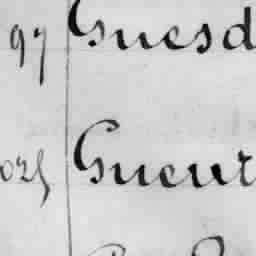 97 Guesd
025 Gueur